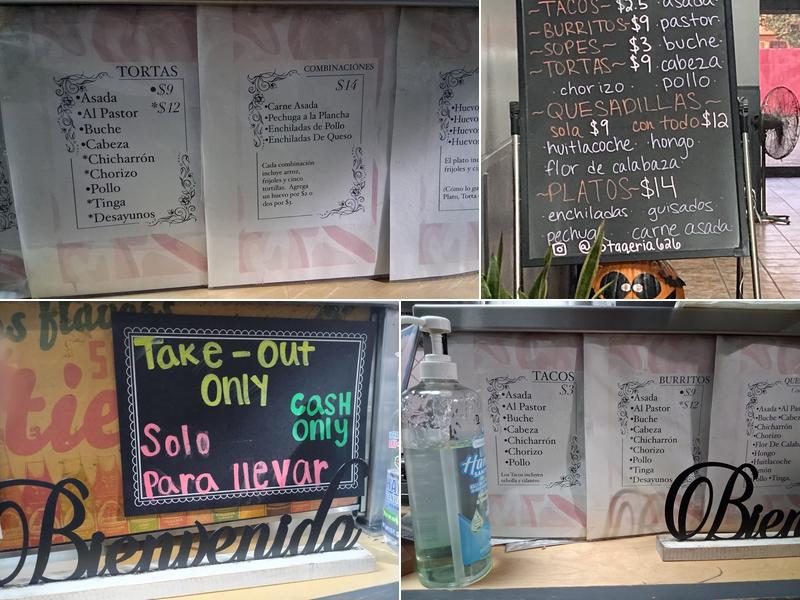 TORTAS
•Asada •$9
•Al Pastor *$12
•Buche
•Cabeza
*Chicharrón
*Chorizo
•Pollo
*Tinga
*Desayunos
COMBINACIÓNES
$14
•Carne Asada
•Pechuga a la Plancha
•Enchiladas de Pollo
•Enchiladas De Queso
Cada combinación
incluye arroz,
frijoles y cinco
tortillas. Agrega
un huevo por $2 o
dos por $3.
•Huevo
•Huevo
•Huevo
•Huevo
El plato
frijoles y ci
Plato, Torta
~TACOS~ $2.5 · asada
~BURRITOS~ $9 · pastor
~SOPES~ $3 · buche
~TORTAS~ $9 · cabeza
· chorizo · pollo
~QUESADILLAS~
sola $9 con todo $12
· huitlacoche · hongo
flor de calabaza
~PLATOS~ $14
· enchiladas · guisados
pechuga · carne asada
626
s flavors
tie
TAKE-OUT
ONLY
CASH
ONLY
Solo
Para llevar
Bienvenido
TACOS
$3
•Asada
•Al Pastor
•Buche
•Cabeza
•Chicharrón
•Chorizo
•Pollo
Los Tacos incluyen
cebolla y cilantro.
BURRITOS
•Asada •$9
•Al Pastor *$12
•Buche
•Cabeza
*Chicharrón
•Chorizo
•Pollo
•Tinga
*Desayunos
QUE
•Asada •Al Pas
•Buche •Cabez
•Chicharrón
Chorizo
•Flor De Calaba
•Hongo
•Huitlacoche
Pollo •Tinga.
Bien